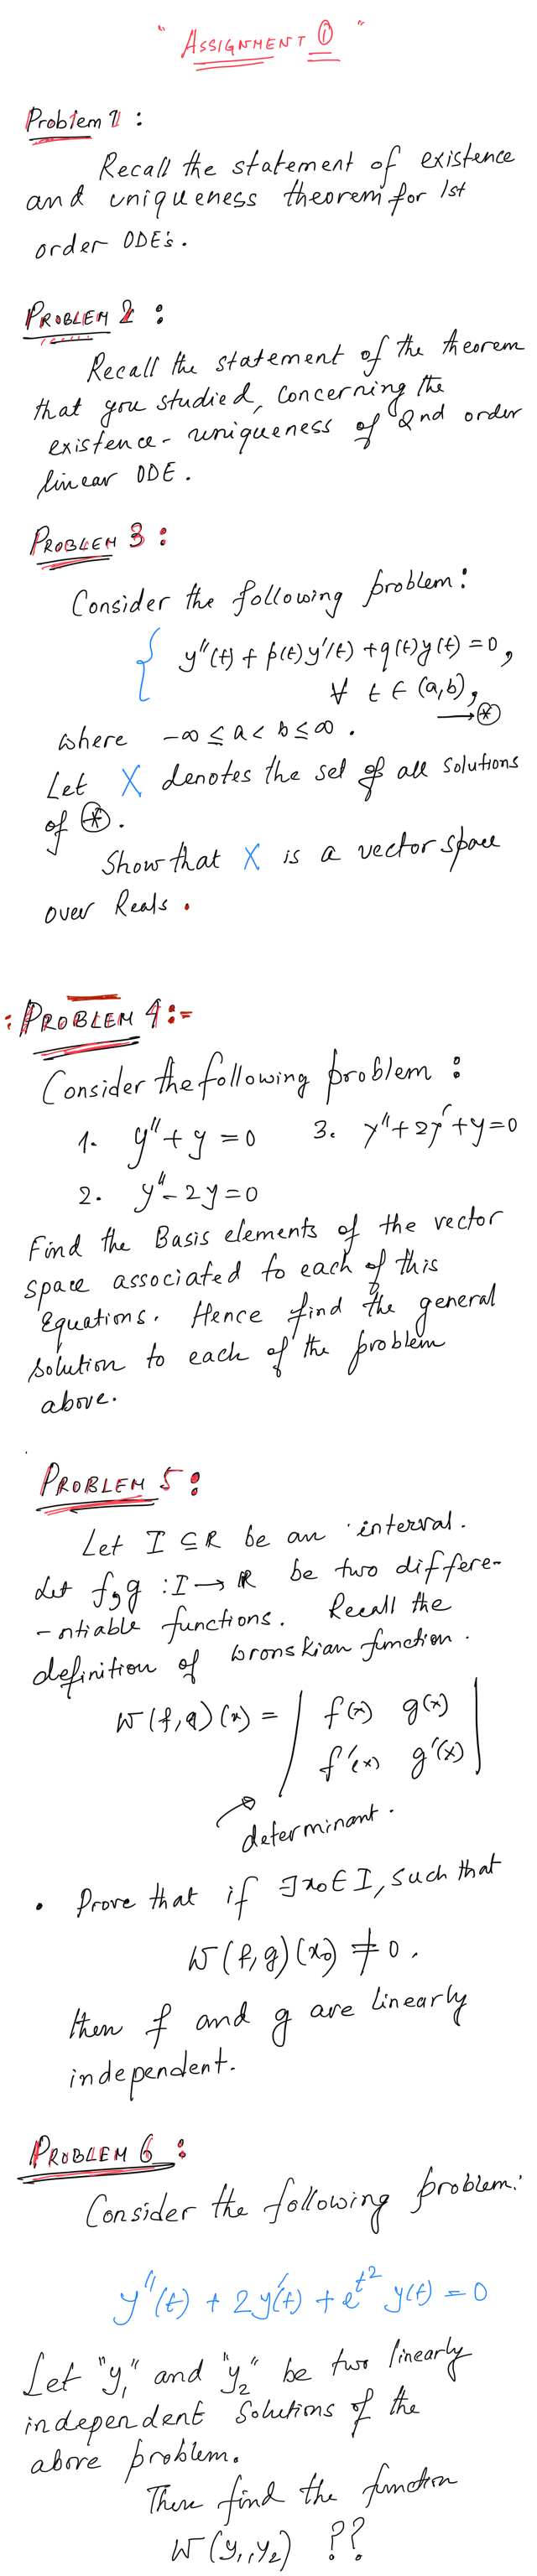 " ASSIGNMENT ① "
Problem 1 :
Recall the statement of existence
and uniqueness theorem for 1st
order ODE's.
PROBLEM 2 :
Recall the statement of the theorem
that you studied, concerning the
existence - uniqueness of 2nd order
linear ODE.
PROBLEM 3 :
Consider the following problem:
{ y''(t) + p(t) y'(t) + q(t) y(t) = 0,
∀ t ∈ (a,b),
→ ⊛
where -∞ ≤ a < b ≤ ∞ .
Let X denotes the set of all solutions
of ⊛.
Show that X is a vector space
over Reals .
: PROBLEM 4 :-
Consider the following problem :
1. y'' + y = 0 3. y'' + 2y' + y = 0
2. y'' - 2y = 0
Find the Basis elements of the vector
space associated to each of this
Equations. Hence find the general
solution to each of the problem
above.
PROBLEM 5 :
Let I ⊆ R be an interval.
Let f, g : I → R be two differe-
-ntiable functions. Recall the
definition of wronskian function.
W(f,g)(x) = | f(x) g(x) |
| f'(x) g'(x) |
determinant.
• Prove that if ∃ x₀ ∈ I, such that
W(f,g)(x₀) ≠ 0.
then f and g are linearly
independent.
PROBLEM 6 :
Consider the following problem:
y''(t) + 2y'(t) + e^{t^2} y(t) = 0
Let "y₁" and "y₂" be two linearly
independent solutions of the
above problem.
Then find the function
W(y₁, y₂) ??